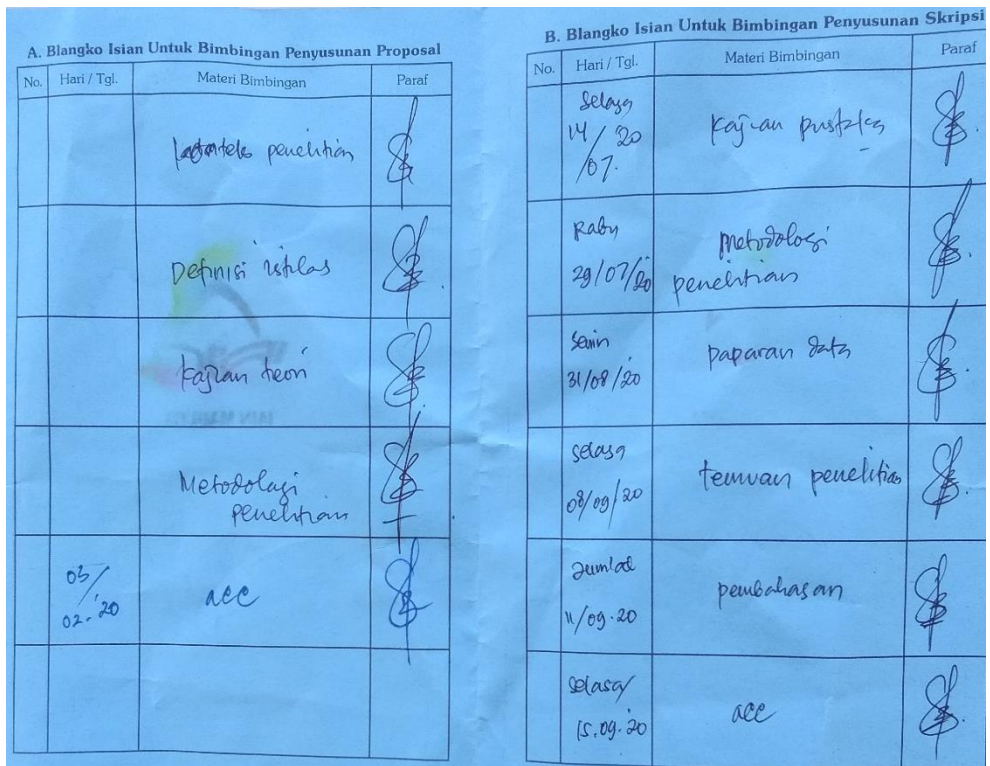 A. Blangko Isian Untuk Bimbingan Penyusunan Proposal
No. Hari / Tgl. Materi Bimbingan Paraf
penelitian
Definisi istilas
kajian teori
Metodologi
penelitian
03/
02-'20
acc
B. Blangko Isian Untuk Bimbingan Penyusunan Skripsi
No. Hari / Tgl. Materi Bimbingan Paraf
Selasa
14/ '20
/07.
kajian pustaka
Rabu
29/07/20
Metodologi
penelitian
Senin
31/08/'20
paparan data
Selasa
08/09/'20
temuan penelitian
Jumlat
11/09.20
pembahasan
Selasa/
15.09.'20
acc